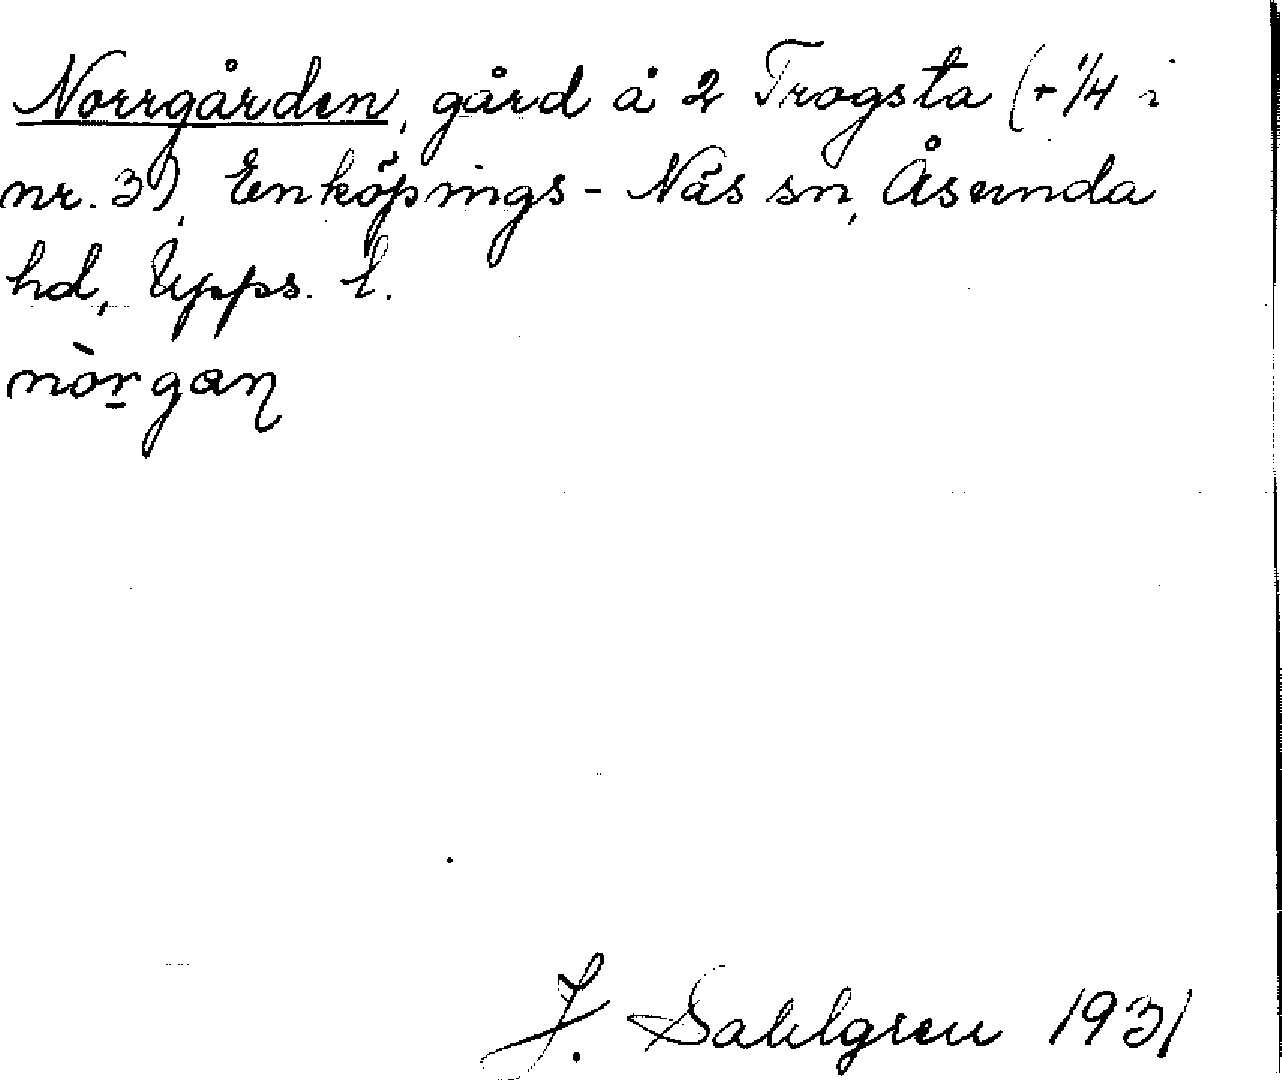 Norrgården, gård å 2 Trogsta (+ 1/4 i
nr. 3), Enköpings-Näs sn, Åsunda
hd, Upps. l.
nòr̲gaɳ
J. Sahlgren 1931